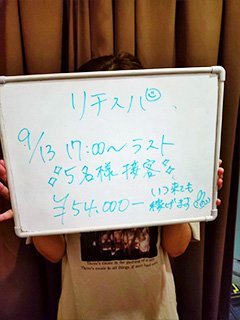 リチスパ
9/13 17:00～ラスト
5名様 接客
¥54,000-
いつ来ても
稼げます